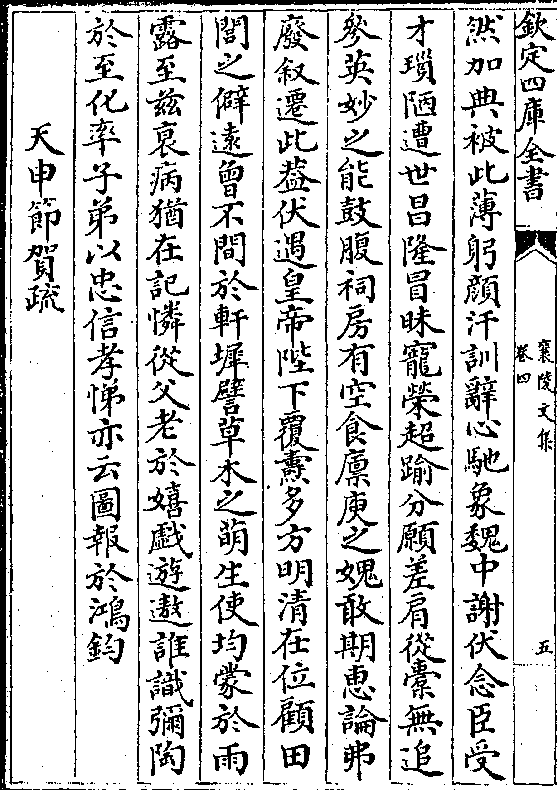 欽定四庫全書
襄陵文集
卷四
五
然加典被此薄躬顔汗訓辭心馳象魏中謝伏念臣受
才瑣陋遭世昌隆冒昧寵榮超踰分願差肩從橐無追
參英妙之能鼓腹祠房有空食廪庾之媿敢期惠論弗
廢叙遷此葢伏遇皇帝陛下覆燾多方明清在位顧田
閭之僻逺曾不間於軒墀譬草木之萌生使均蒙於雨
露至兹衰病猶在記憐從父老於嬉戲遊遨誰識彌陶
於至化率子弟以忠信孝悌亦云圖報於鴻鈞
天申節賀疏